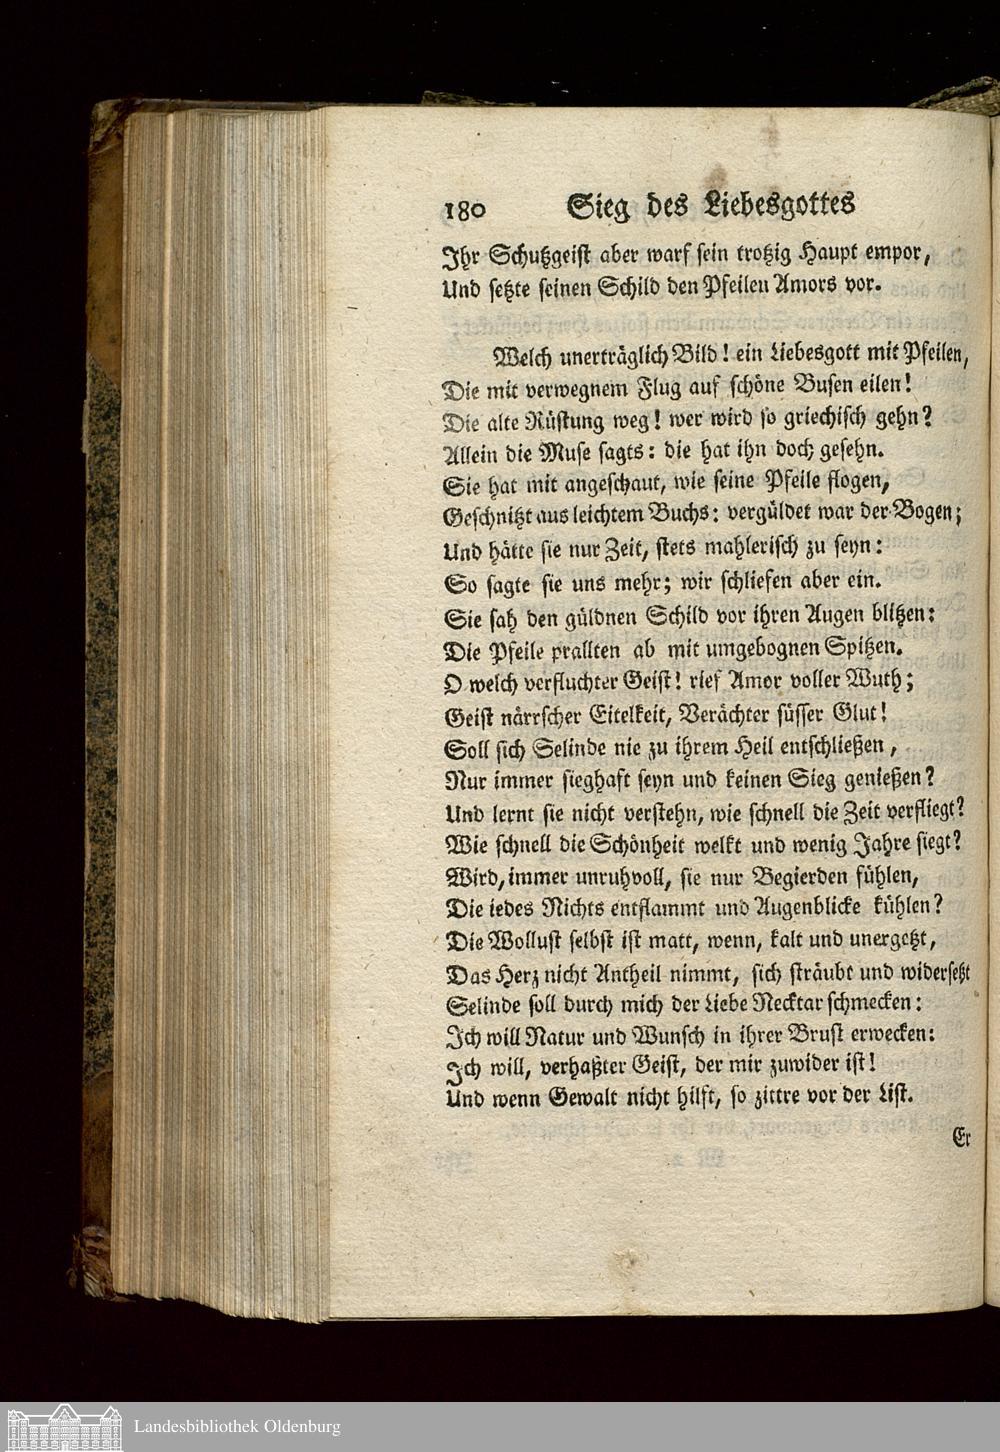 180 Sieg des Liebesgottes
Ihr Schutzgeist aber warf sein trotzig Haupt empor,
Und setzte seinen Schild den Pfeilen Amors vor.
Welch unerträglich Bild! ein Liebesgott mit Pfeilen,
Die mit verwegnem Flug auf schöne Busen eilen!
Die alte Rüstung weg! wer wird so griechisch gehn?
Allein die Muse sagts: die hat ihn doch gesehn.
Sie hat mit angeschaut, wie seine Pfeile flogen,
Geschnitzt aus leichtem Buchs: vergüldet war der Bogen;
Und hätte sie nur Zeit, stets mahlerisch zu seyn:
So sagte sie uns mehr; wir schliefen aber ein.
Sie sah den güldnen Schild vor ihren Augen blitzen:
Die Pfeile prallten ab mit umgebognen Spitzen.
O welch verfluchter Geist! rief Amor voller Wuth;
Geist närrscher Eitelkeit, Verächter süsser Glut!
Soll sich Selinde nie zu ihrem Heil entschließen,
Nur immer sieghaft seyn und keinen Sieg genießen?
Und lernt sie nicht verstehn, wie schnell die Zeit verfliegt?
Wie schnell die Schönheit welkt und wenig Jahre siegt?
Wird, immer unruhvoll, sie nur Begierden fühlen,
Die iedes Nichts entflammt und Augenblicke kühlen?
Die Wollust selbst ist matt, wenn, kalt und unergetzt,
Das Herz nicht Antheil nimmt, sich sträubt und widersetzt
Selinde soll durch mich der Liebe Necktar schmecken:
Ich will Natur und Wunsch in ihrer Brust erwecken:
Ich will, verhaßter Geist, der mir zuwider ist!
Und wenn Gewalt nicht hilft, so zittre vor der List.
Er
Landesbibliothek Oldenburg